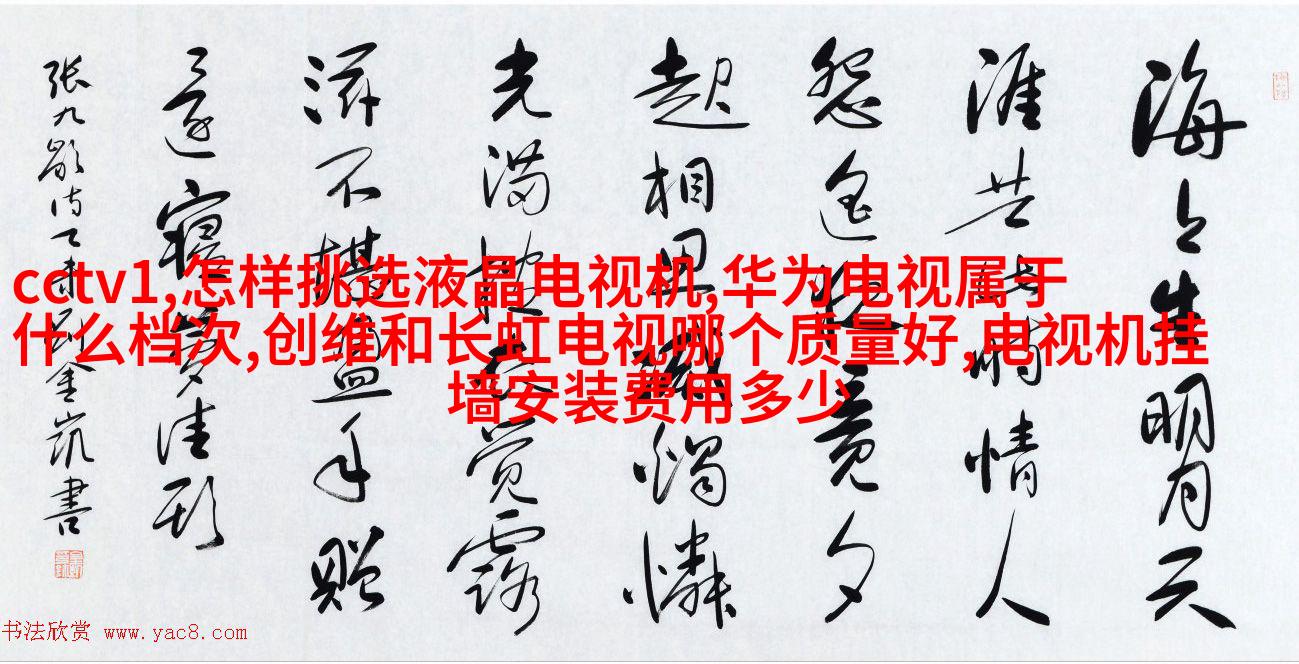 cctv1,怎样挑选液晶电视机,华为电视属于
什么档次,创维和长虹电视哪个质量好,电视机挂
墙安装费用多少
海上生明月天
涯共此時情人
怨遥夜竟夕
起相思滅燭憐
光滿披衣覺露
滋不堪盈手贈
還寢夢佳期
張九齡詩乙未金凱書
书法欣赏 www.yac8.com